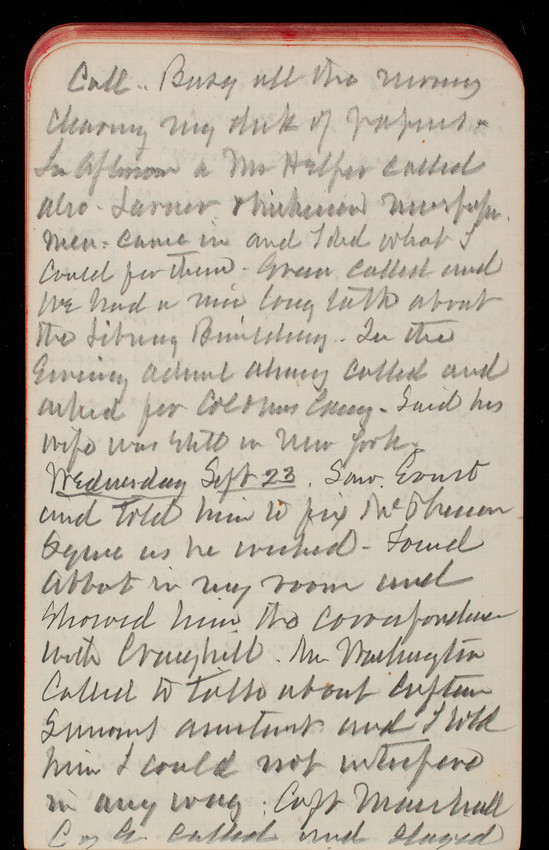 Call.. Busy all the morning
clearing my desk of papers -
In afternoon a Mr Halfer called
also - Larner & Dickinson newspaper
men - came in and I did what I
could for them - Green called and
we had a nice long talk about
the Library Building. In the
Evening called and
asked for Col & Mrs Casey - Said his
wife was still in New York.
Wednesday Sept 23. Saw Ernst
and told him to fix McPherson
Square as he wished - Found
Abbot in my room and
showed him the correspondence
with Craighill. Mr Washington
called to talk about Captain
assistant and I told
him I could not interfere
in any way. Capt Marshall
C of E called and stayed